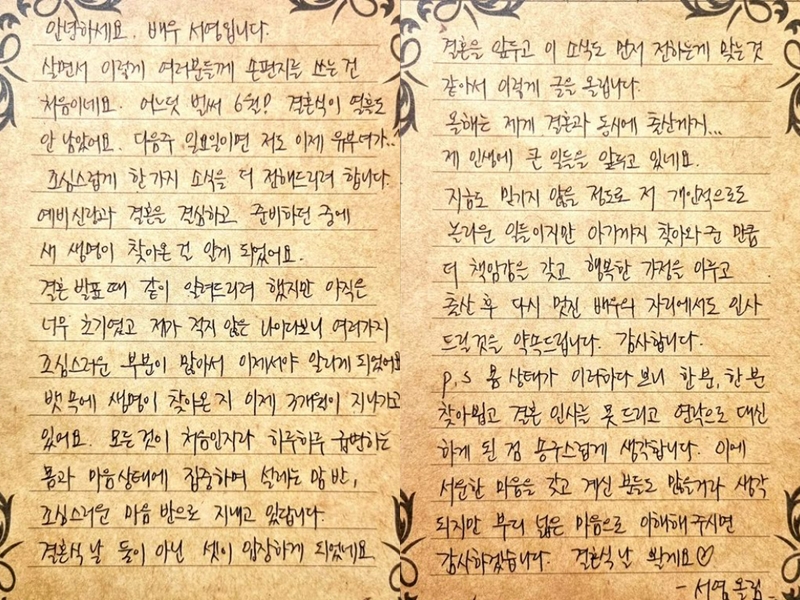 안녕하세요. 배우 서영입니다.
살면서 이렇게 여러분들께 손편지를 쓰는 건
처음이네요. 어느덧 벌써 6월? 결혼식이 열흘도
안 남았어요. 다음주 일요일이면 저도 이제 유부녀가..
조심스럽게 한가지 소식을 더 전해드리려 합니다.
예비신랑과 결혼을 결심하고 준비하던 중에
새 생명이 찾아온 걸 알게 되었어요.
결혼 발표때 같이 알려드리려 했지만 아직은
너무 초기였고 제가 적지 않은 나이다보니 여러가지
조심스러운 부분이 많아서 이제서야 알리게 되었어요
뱃속에 생명이 찾아온 지 이제 3개월이 지나가고
있어요. 모든것이 처음인지라 하루하루 급변하는
몸과 마음상태에 집중하며 설레는 맘 반,
조심스러운 마음 반으로 지내고 있답니다.
결혼식날 둘이 아닌 셋이 입장하게 되었네요
결혼을 앞두고 이 소식도 먼저 전하는게 맞는것
같아서 이렇게 글을 올립니다.
올해는 제게 결혼과 동시에 출산까지...
제 인생에 큰 일들을 앞두고 있네요.
지금도 믿기지 않을 정도로 저 개인적으로도
놀라운 일들이지만 아가까지 찾아와 준 만큼
더 책임감을 갖고 행복한 가정을 이루고
출산 후 다시 멋진 배우의 자리에서도 인사
드릴것을 약속드립니다. 감사합니다.
p.s 몸 상태가 이러하다 보니 한분, 한분
찾아뵙고 결혼 인사를 못 드리고 연락으로 대신
하게 된 점 송구스럽게 생각합니다. 이에
서운한 마음을 갖고 계신 분들도 많을거라 생각
되지만 부디 넓은 마음으로 이해해 주시면
감사하겠습니다. 결혼식날 봴게요♡
- 서영 올림 -